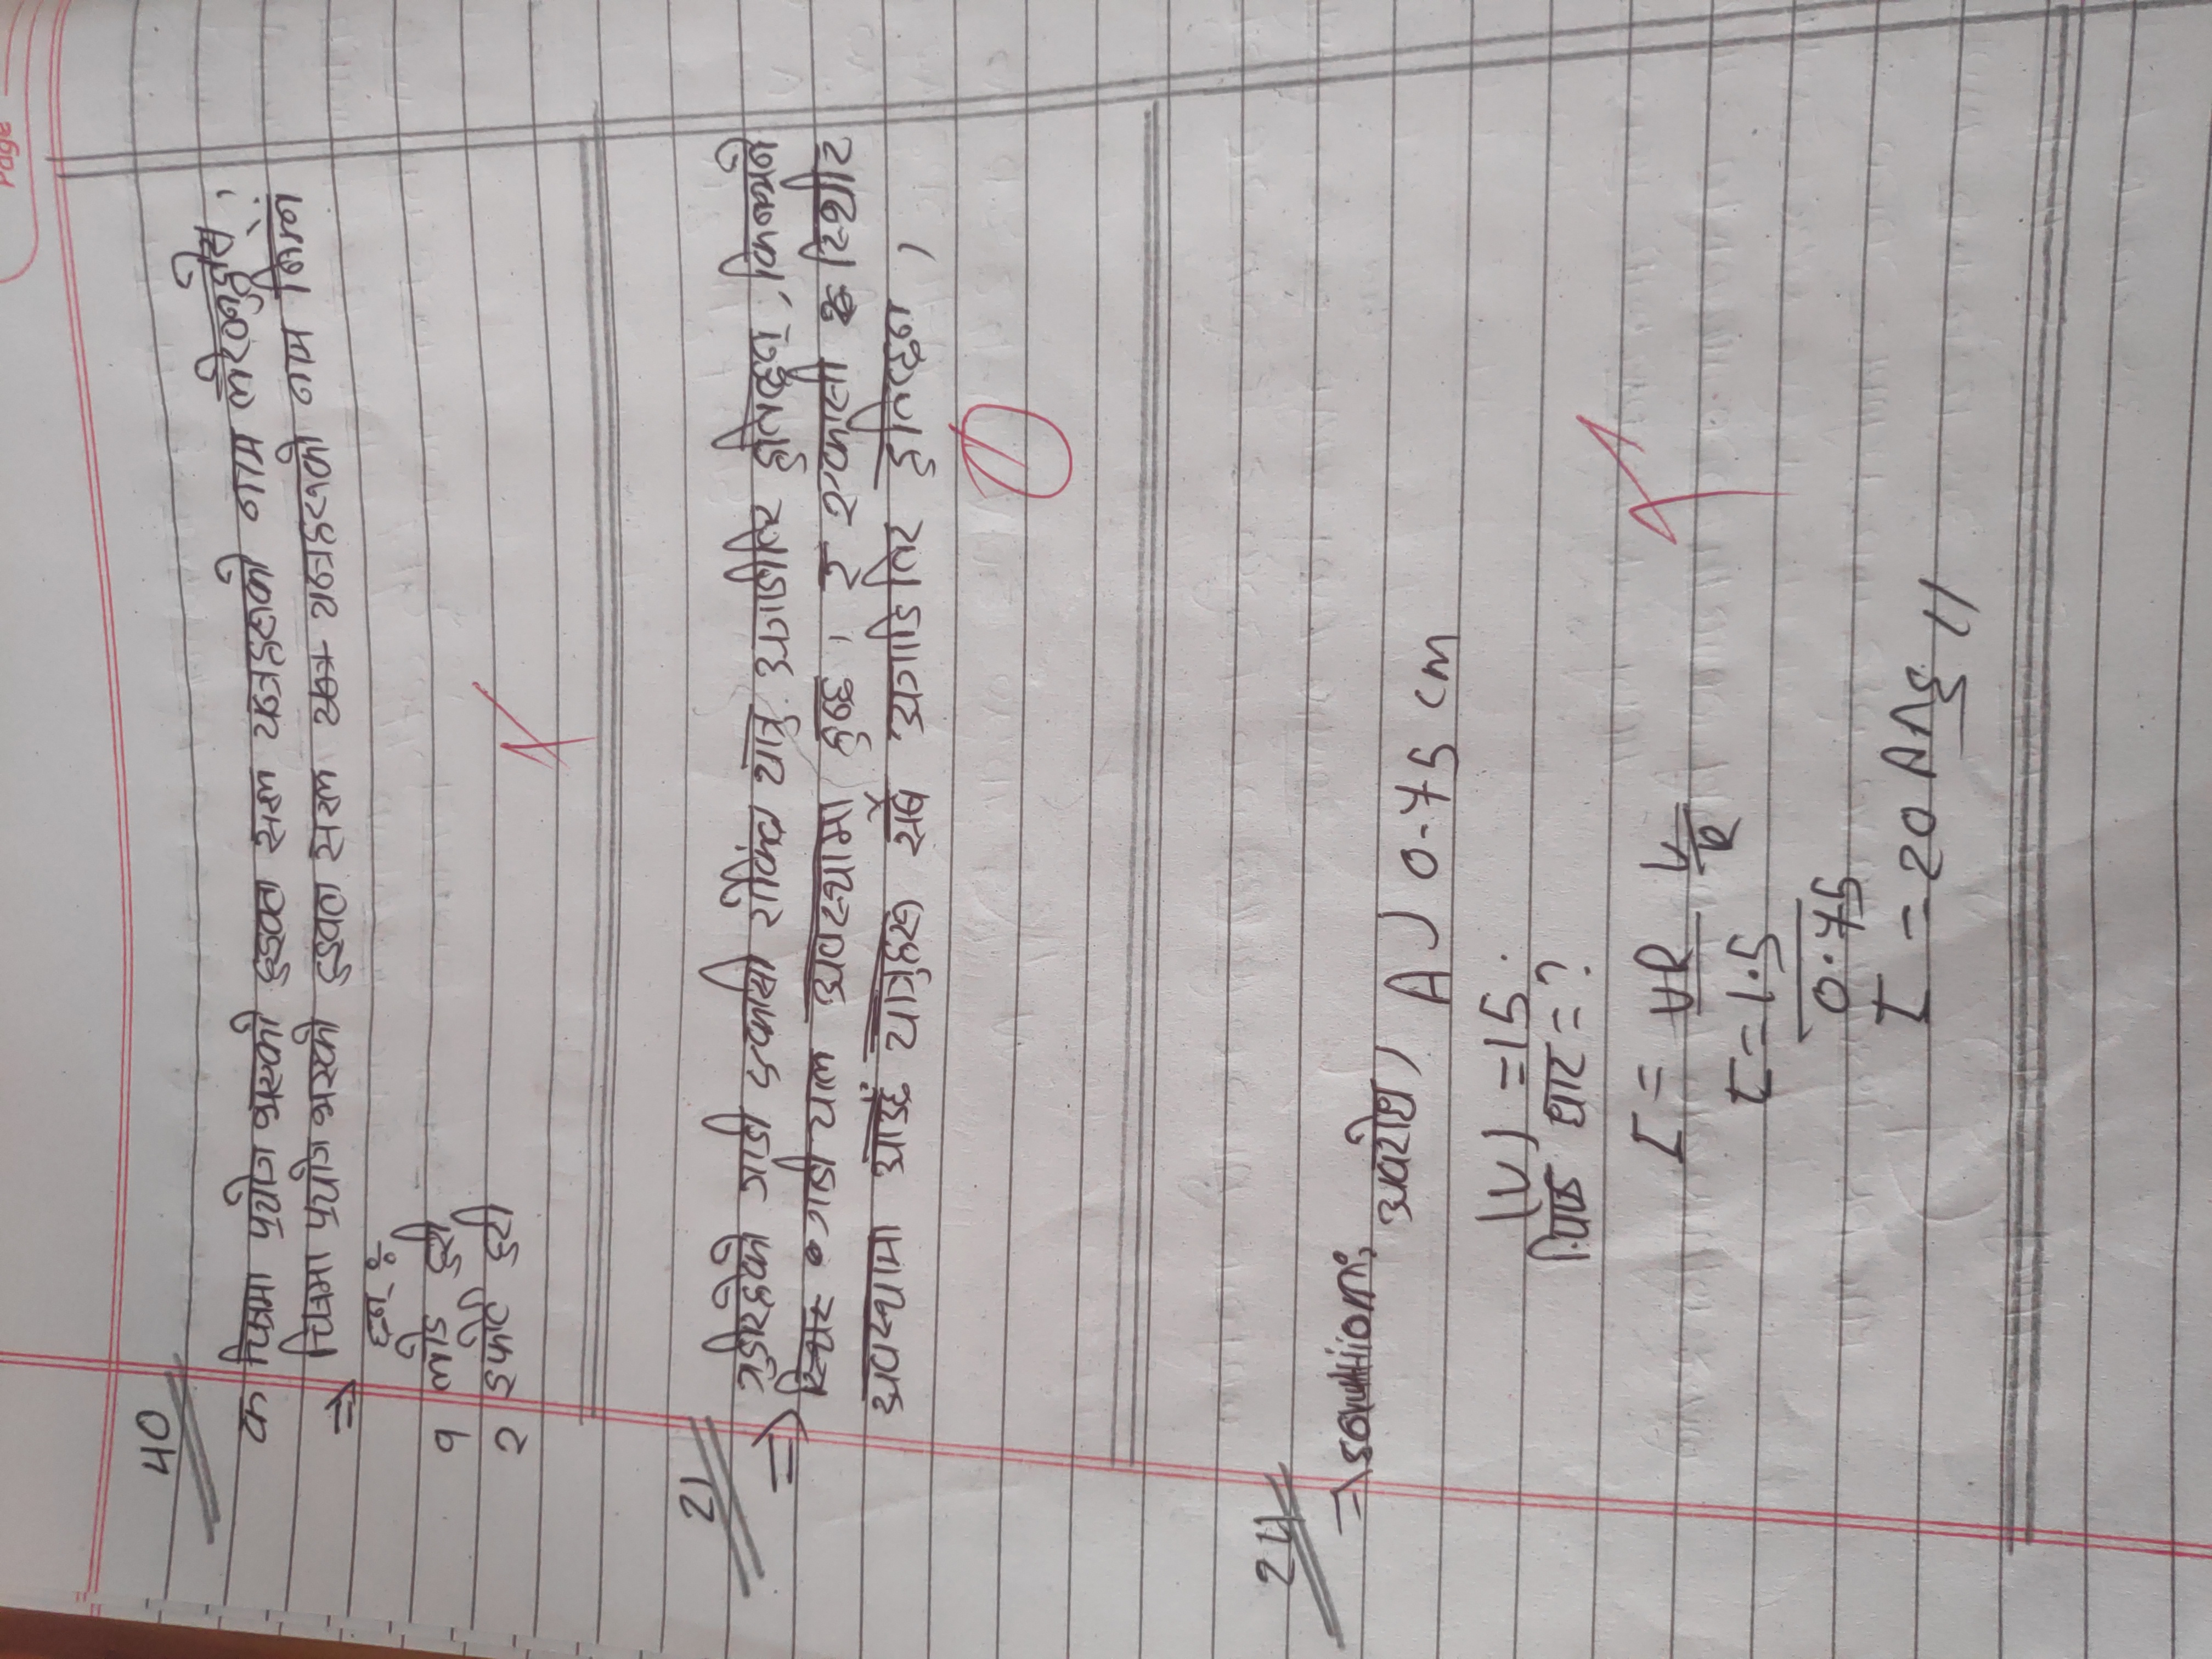 Page
40
क चित्रमा प्रयोग भएको दुइवटा सरल यन्त्रहरूको नाम लेख्नुहोस,
⇒ चित्रमा प्रयोग भएको दुइवटा सरल यन्त्र यन्त्रहरूको नाम निम्न
छन् :
१ लोड दुरी
२ इफोर्ट दुरी
21
⇒ गुडीरहेको गाडी एकासी रोकिंदा यात्रु अगाडीतिर हुत्तिन्छन्, किनभने
स्थिर गाडी चाल अवस्थामा हुन्छ, र एकासी स्थीर
अवस्थामा आउदै यात्रुहरू सबै अगाडितिर हुत्तिन्छन,
24
⇒ solution:
अवरोध, A) 0.75 cm
(V) = 15.
धार = ?
I = VR V/R
I = 1.5
0.75
I = 20 Ans //